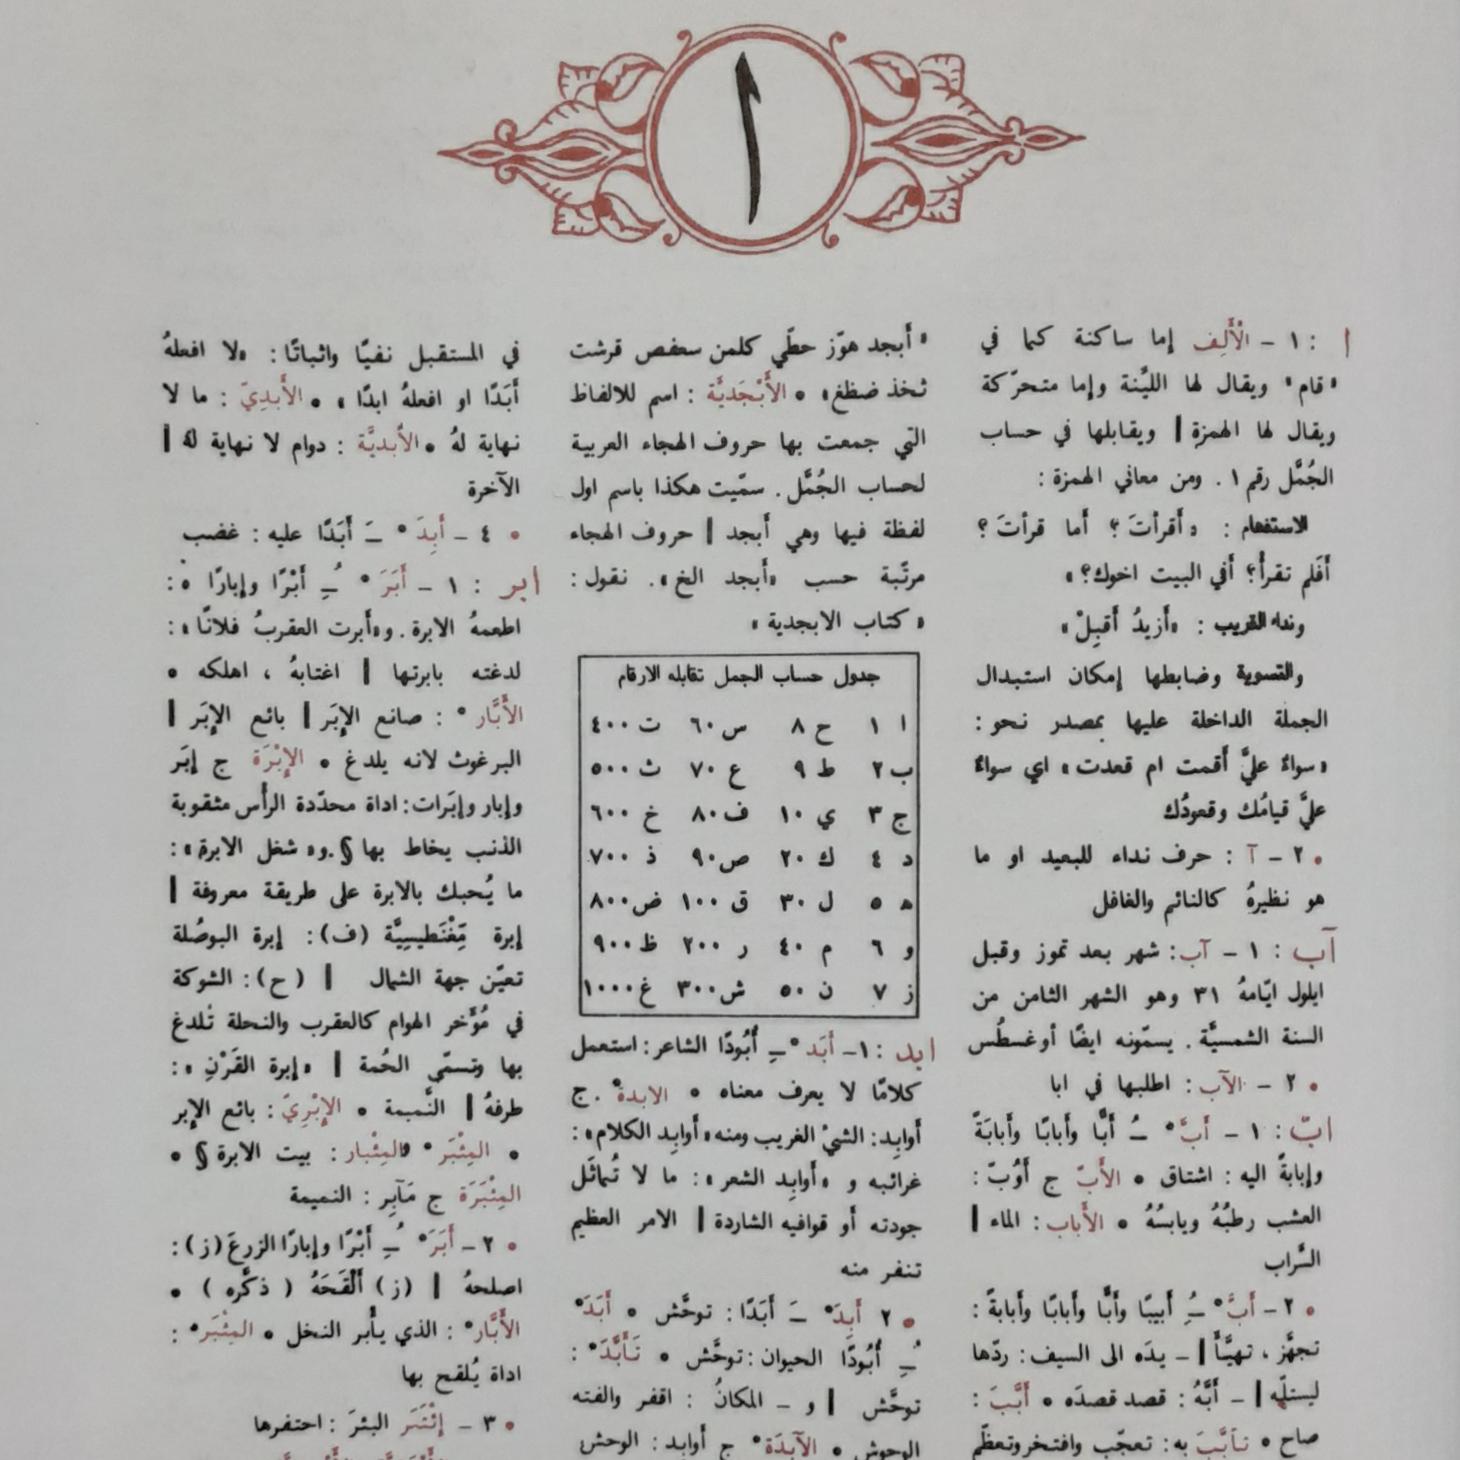 ا
ا : ١ – الْأَلِف إما ساكنة كما في
«قام» ويقال لها الليِّنة وإما متحرّكة
ويقال لها الهمزة | ويقابلها في حساب
الجُمَّل رقم ١ . ومن معاني الهمزة :
الاستفهام : «أَقرأتَ ؟ أَما قرأتَ ؟
أَفَلم تقرأْ؟ أَفي البيت اخوك؟»
ونداء القريب : «أَزيدُ أَقبِلْ»
والتسوية وضابطها إمكان استبدال
الجملة الداخلة عليها بمصدر نحو :
«سواءٌ عليَّ أَقمت ام قعدت» اي سواءٌ
عليَّ قيامُك وقعودُك
• ٢ – آ : حرف نداء للبعيد او ما
هو نظيرهُ كالنائم والغافل
آب : ١ – آب: شهر بعد تموز وقبل
ايلول ايّامهُ ٣١ وهو الشهر الثامن من
السنة الشمسيَّة . يسمّونه ايضًا أوغسطُس
• ٢ – الآب : اطلبها في ابا
ابّ : ١ – أَبَّ° ـُ أَبًّا وأَبابًا وأَبابَةً
وإبابةً اليه : اشتاق • الأَبّ ج أَوُبّ :
العشب رطبُهُ ويابسُهُ • الأَباب : الماء |
السَّراب
• ٢ – أَبَّ° ـُِ أَبيبًا وأَبًّا وأَبابًا وأَبابةً :
تجهَّز ، تهيَّأَ | – يدَه الى السيف : ردّها
ليستلَّه | – أَبَّهُ : قصد قصدَه • أَبَّبَ :
صاح • تَأَبَّبَ به : تعجّب وافتخر وتعظّم
«أَبجد هوّز حطّي كلمن سعفص قرشت
ثخذ ضظغ» • الأَبْجَديَّة : اسم للالفاظ
التي جمعت بها حروف الهجاء العربية
لحساب الجُمَّل . سمّيت هكذا باسم اول
لفظة فيها وهي أَبجد | حروف الهجاء
مرتّبة حسب «أبجد الخ» . نقول :
«كتاب الابجدية»
جدول حساب الجمل تقابله الارقام
ا ١ ح ٨ س ٦٠ ت ٤٠٠
ب ٢ ط ٩ ع ٧٠ ث ٥٠٠
ج ٣ ي ١٠ ف ٨٠ خ ٦٠٠
د ٤ ك ٢٠ ص ٩٠ ذ ٧٠٠
ه ٥ ل ٣٠ ق ١٠٠ ض ٨٠٠
و ٦ م ٤٠ ر ٢٠٠ ظ ٩٠٠
ز ٧ ن ٥٠ ش ٣٠٠ غ ١٠٠٠
ابد : ١– أَبَد° ـِ أُبُودًا الشاعر : استعمل
كلامًا لا يعرف معناه • الابدة° . ج
أَوابِد : الشيْ الغريب ومنه «أَوابِد الكلام» :
غرائبه و «أَوابِد الشعر» : ما لا تُماثَل
جودته أو قوافيه الشاردة | الامر العظيم
تنفر منه
• ٢ أَبِدَ° ـَ أَبَدًا : توحَّش • أَبَدَ°
ـُِ أُبُودًا الحيوان : توحَّش • تَأَبَّدَ° :
توحَّش | و – المكانُ : اقفر والفته
الوحوش • الآبِدَة° ج أَوابد : الوحش
في المستقبل نفيًا واثباتًا : «لا افعلهُ
أَبَدًا او افعلهُ ابدًا» • الأَبَدِيّ : ما لا
نهاية لهُ • الأَبديَّة : دوام لا نهاية لهُ |
الآخرة
• ٤ – أَبِدَ° ـَ أَبَدًا عليه : غضب
أبر : ١ – أَبَرَ° ـُِ أَبْرًا وإبارًا ه :
اطعمهُ الابرة . و«أَبرت العقربُ فلانًا» :
لدغته بابرتها | اغتابهُ ، اهلكه •
الأَبَّار° : صانع الإبَر | بائع الإبَر |
البرغوث لانه يلدغ • الإبْرَة ج إبَر
وإبار وإبَرات : اداة محدّدة الرأس مثقوبة
الذنب يخاط بها § . و«شغل الابرة» :
ما يُحبك بالابرة على طريقة معروفة |
إبرة مِّغْنَطيسِيَّة (ف) : إبرة البوصُلة
تعيّن جهة الشمال | (ح) : الشوكة
في مُؤَخر الهوام كالعقرب والنحلة تُلدغ
بها وتسمّى الحُمة | «إبرة القَرْن» :
طرفهُ | النَّميمة • الإبْرِيّ : بائع الإبر
• المِئْبَر° والمِئْبار : بيت الابرة § •
المِئْبَرَة ج مَآبِر : النميمة
• ٢ – أَبَرَ° ـُِ أَبْرًا وإبارًا الزرعَ (ز) :
اصلحهُ | (ز) أَلْقَحَهُ (ذكَّره) •
الأَبَّار° : الذي يأبر النخل • المِئْبَر° :
اداة يُلقح بها
• ٣ – إئْتَبَرَ البئرَ : احتفرها